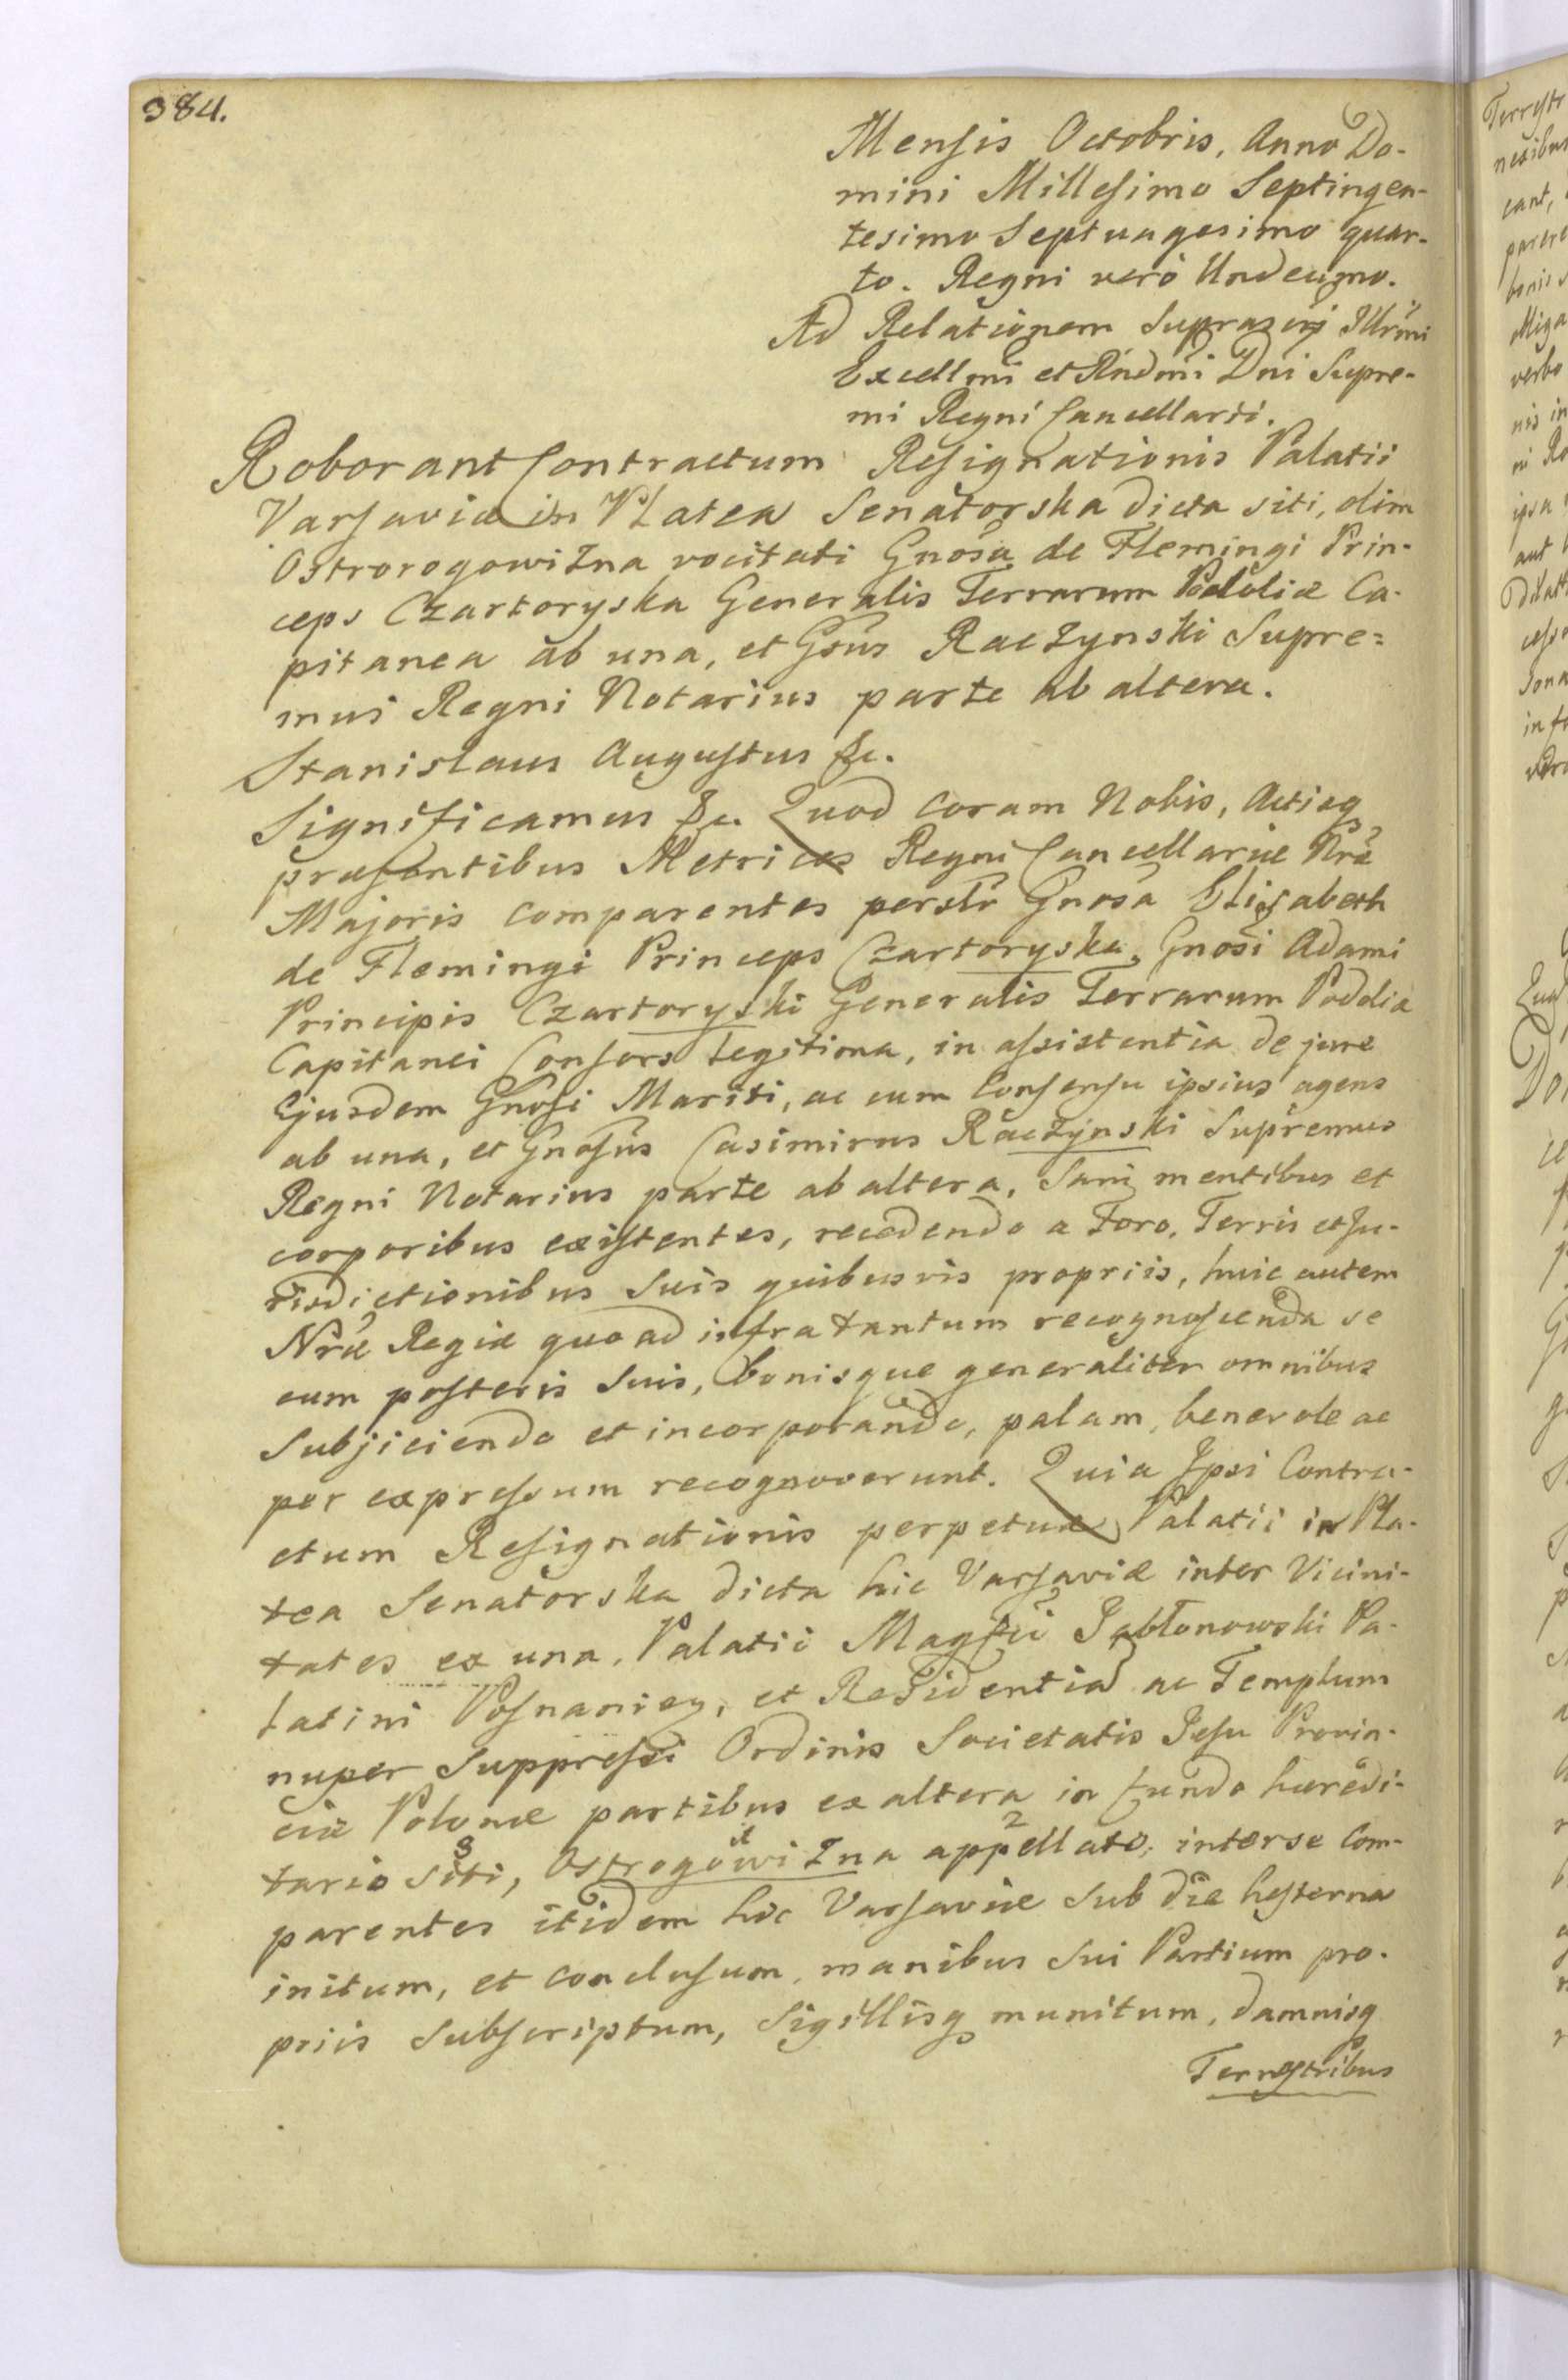 384.
Mensis Octobris, Anno Do-
mini Millesimo Septingen-
tesimo Septuagesimo quar-
to. Regni verò Undecimo.
Ad Relationem Suprascrij Illrmi
Excellmi et Rndmi Dni Supre-
mi Regni Cancellarii.
Roborant Contractum Resignationis Palatii
Varsaviæ in Platea Senatorska dicta siti, olim
Ostrorogowizna vocitati Gnosa de Flemingi Prin-
ceps Czartoryska Generalis Terrarum Podoliæ Ca-
pitanea ab una, et Gsus Raczynski Supre=
mus Regni Notarius parte ab altera.
Stanislaus Augustus &c.
Significamus &c. Quod coram Nobis, Actisq
præsentibus Metrices Regni Cancellariæ Nræ
Majoris comparentes perslr Gnosa Elisabeth
de Flemingi Princeps Czartoryska, Gnosi Adami
Principis Czartoryski Generalis Terrarum Podolia
Capitanei Consors legitima, in assistentia de jure
Ejusdem Gnosi Mariti, ac cum Consensu ipsius agens
ab una, et Gnosus Casimirus Raczynski Supremus
Regni Notarius parte ab altera, Sani mentibus et
corporibus existentes, recedendo a Foro, Terris et Ju-
risdictionibus Suis quibusvis propriis, huic autem
Nræ Regiæ quoad infra tantum recognoscenda se
cum posteris Suis, bonisque generaliter omnibus
Subjiciendo et incorporando, palam, benevole ac
per expressum recognoverunt. Quia Ipsi Contra-
ctum Resignationis perpetuæ Palatii in Pla-
tea Senatorska dicta hic Varsaviæ inter Vicini-
tates ex una, Palatii Magfci Jabłonowski Pa-
latini Posnanien, et Residentia ac Templum
nuper Suppressi Ordinis Societatis Jesu Provin-
ciæ Polonæ partibus ex altera in fundo hæredi-
tario siti, Ostrogowizna appellato, inter se Com-
parentes itidem hic Varsaviæ Sub die hesterna
initum, et conclusum, manibus Sui Partium pro-
priis Subscriptum, Sigillisq munitum, damnisq
Terrestribus